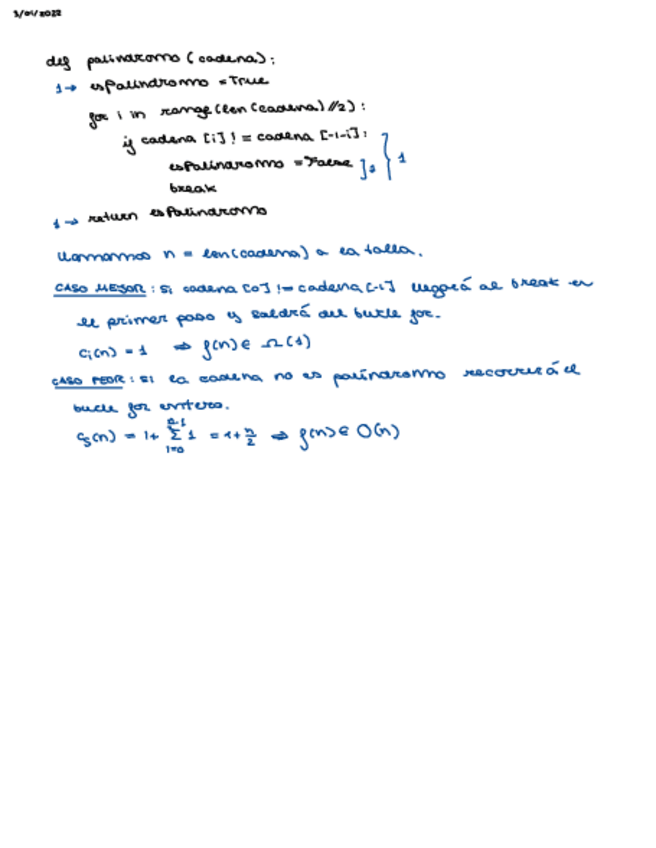 3/04/2022
def palindromo (cadena):
1→ esPalindromo = True
for i in range(len(cadena)//2):
if cadena [i] != cadena [-1-i]:
esPalindromo = False ] 1 } 1
break
1→ return esPalindromo
Llamamos n = len(cadena) a la talla.
CASO MEJOR: Si cadena [0] != cadena [-1] llegará al break en
el primer paso y saldrá del bucle for.
Ci(n) = 1 ⇒ f(n) ∈ Ω(1)
CASO PEOR: si la cadena no es palíndromo recorrerá el
bucle for entero.
Cs(n) = 1+ Σ 1 = 1+ n/2 ⇒ f(n) ∈ O(n)
i=0